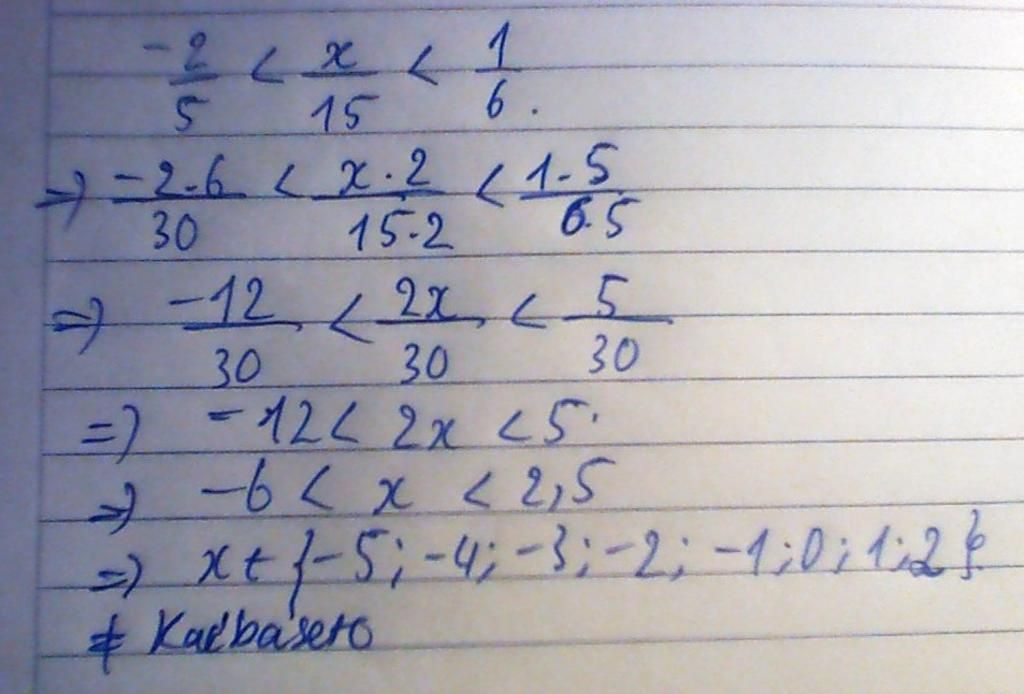 -2/5 < x/15 < 1/6.
=> -2.6/30 < x.2/15.2 < 1.5/6.5
=> -12/30 < 2x/30 < 5/30
=> -12 < 2x < 5
=> -6 < x < 2,5
=> x ∈ {-5; -4; -3; -2; -1; 0; 1; 2}